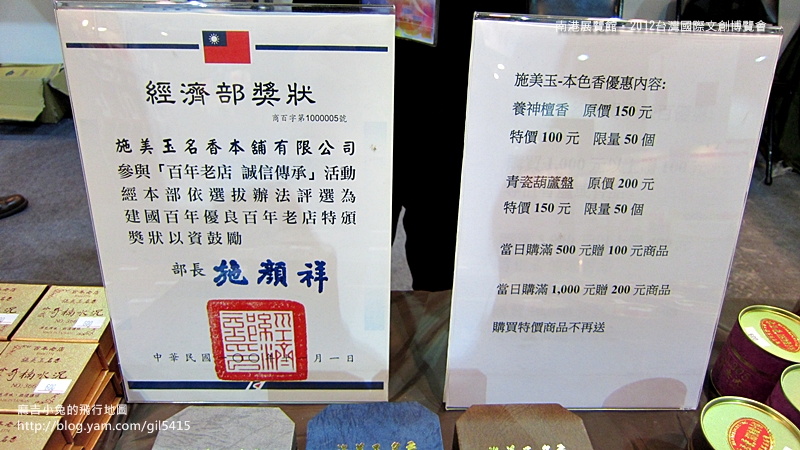 南港展覽館‧2012台灣國際文創博覽會
經濟部獎狀
商百字第1000005號
施美玉名香本舖有限公司
參與「百年老店 誠信傳承」活動
經本部依選拔辦法評選為
建國百年優良百年老店特頒
獎狀以資鼓勵
部長 施顏祥
中華民國一〇〇 月一日
施美玉-本色香優惠內容:
養神檀香 原價 150 元
特價 100 元 限量 50 個
青瓷葫蘆盤 原價 200 元
特價 150 元 限量 50 個
當日購滿 500 元贈 100 元商品
當日購滿 1,000 元贈 200 元商品
購買特價商品不再送
奇楠水沉
麻吉小兔的飛行地圖
http://blog.yam.com/gil5415